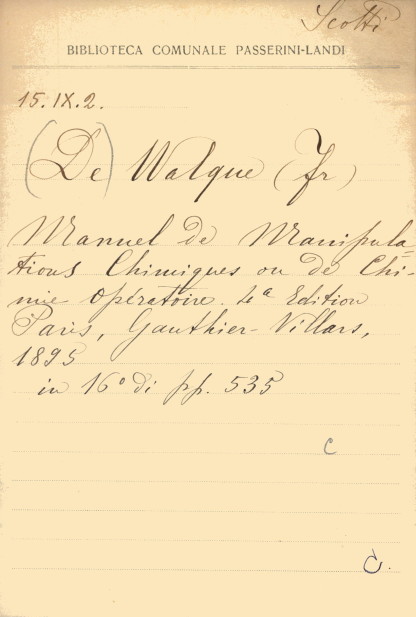 Scotti
BIBLIOTECA COMUNALE PASSERINI-LANDI
15.IX.2.
(De) Walque (Fr)
Manuel de Manipula=
tions Chimiques ou de Chi-
mie opératoire. 4a Edition
Paris, Gauthier-Villars,
1895
in 16° di pp. 535
C
C.